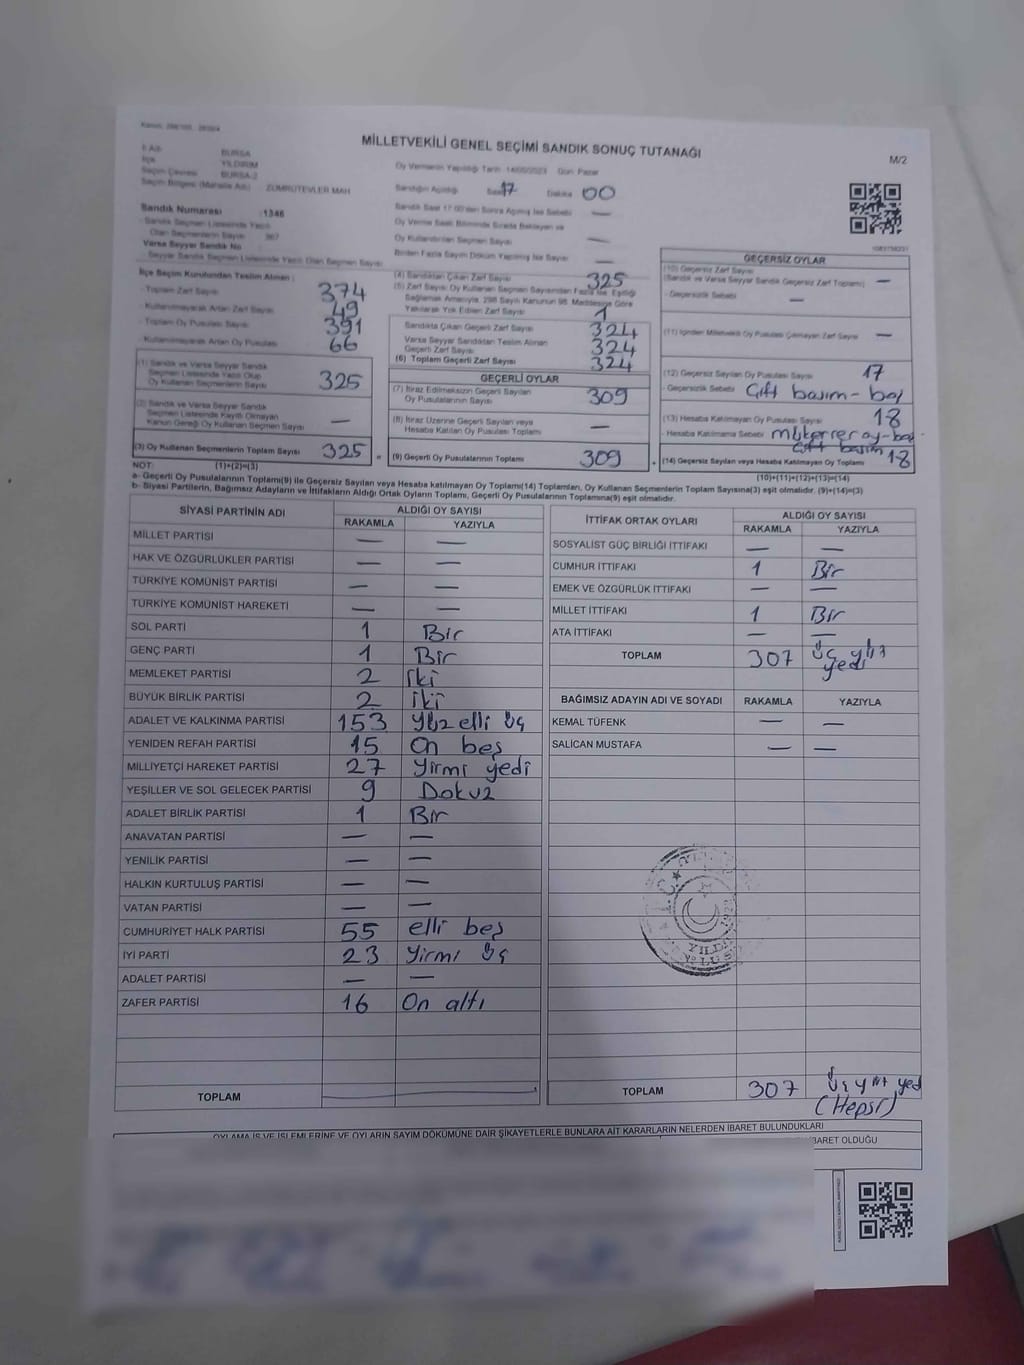 MİLLETVEKİLİ GENEL SEÇİMİ SANDIK SONUÇ TUTANAĞI
M/2
İl Adı : BURSA
İlçe : YILDIRIM
Seçim Çevresi : BURSA-2
Seçim Bölgesi (Mahalle Adı) : ZÜMRÜTEVLER MAH
Oy Vermenin Yapıldığı Tarih : 14/05/2023 Gün: Pazar
Sandığın Açıldığı Saat 17 Dakika 00
Sandık Saat 17:00'den Sonra Açılmış İse Sebebi —
Oy Verme Saati Bitiminde Sırada Bekleyen ve
Oy Kullandırılan Seçmen Sayısı —
Birden Fazla Sayım Döküm Yapılmış İse Sayısı —
Sandık Numarası : 1346
Sandık Seçmen Listesinde Yazılı
Olan Seçmenlerin Sayısı : 367
Varsa Seyyar Sandık No :
Seyyar Sandık Seçmen Listesinde Yazılı Olan Seçmen Sayısı :
İlçe Seçim Kurulundan Teslim Alınan :
- Toplam Zarf Sayısı 374
- Kullanılmayarak Artan Zarf Sayısı 49
- Toplam Oy Pusulası Sayısı 391
- Kullanılmayarak Artan Oy Pusulası 66
(1) Sandık ve Varsa Seyyar Sandık
Seçmen Listesinde Yazılı Olup
Oy Kullanan Seçmenlerin Sayısı 325
(2) Sandık ve Varsa Seyyar Sandık
Seçmen Listesinde Kayıtlı Olmayan
Kanun Gereği Oy Kullanan Seçmen Sayısı —
(3) Oy Kullanan Seçmenlerin Toplam Sayısı 325 =
(4) Sandıktan Çıkan Zarf Sayısı 325
(5) Zarf Sayısı Oy Kullanan Seçmen Sayısından Fazla İse, Eşitliği
Sağlamak Amacıyla, 298 Sayılı Kanunun 98. Maddesine Göre
Yakılarak Yok Edilen Zarf Sayısı 1
Sandıkta Çıkan Geçerli Zarf Sayısı 324
Varsa Seyyar Sandıktan Teslim Alınan
Geçerli Zarf Sayısı 324
(6) Toplam Geçerli Zarf Sayısı 324
GEÇERLİ OYLAR
(7) İtiraz Edilmeksizin Geçerli Sayılan
Oy Pusulalarının Sayısı 309
(8) İtiraz Üzerine Geçerli Sayılan veya
Hesaba Katılan Oy Pusulası Toplamı —
(9) Geçerli Oy Pusulalarının Toplamı 309 +
GEÇERSİZ OYLAR
(10) Geçersiz Zarf Sayısı
(Sandık ve Varsa Seyyar Sandık Geçersiz Zarf Toplamı) —
- Geçersizlik Sebebi —
(11) İçinden Milletvekili Oy Pusulası Çıkmayan Zarf Sayısı —
(12) Geçersiz Sayılan Oy Pusulası Sayısı 17
- Geçersizlik Sebebi Çift basım-boş
(13) Hesaba Katılmayan Oy Pusulası Sayısı 18
- Hesaba Katılmama Sebebi mükerrer oy-boş
Çift basım
(14) Geçersiz Sayılan veya Hesaba Katılmayan Oy Toplamı 18
NOT: (1)+(2)=(3)
(10)+(11)+(12)+(13)=(14)
a- Geçerli Oy Pusulalarının Toplamı(9) ile Geçersiz Sayılan veya Hesaba Katılmayan Oy Toplamı(14) Toplamları, Oy Kullanan Seçmenlerin Toplam Sayısına(3) eşit olmalıdır. (9)+(14)=(3)
b- Siyasi Partilerin, Bağımsız Adayların ve İttifakların Aldığı Ortak Oyların Toplamı, Geçerli Oy Pusulalarının Toplamına(9) eşit olmalıdır.
SİYASİ PARTİNİN ADI ALDIĞI OY SAYISI
RAKAMLA YAZIYLA
MİLLET PARTİSİ — —
HAK VE ÖZGÜRLÜKLER PARTİSİ — —
TÜRKİYE KOMÜNİST PARTİSİ — —
TÜRKİYE KOMÜNİST HAREKETİ — —
SOL PARTİ 1 Bir
GENÇ PARTİ 1 Bir
MEMLEKET PARTİSİ 2 iki
BÜYÜK BİRLİK PARTİSİ 2 iki
ADALET VE KALKINMA PARTİSİ 153 Yüz elli üç
YENİDEN REFAH PARTİSİ 15 On beş
MİLLİYETÇİ HAREKET PARTİSİ 27 Yirmi yedi
YEŞİLLER VE SOL GELECEK PARTİSİ 9 Dokuz
ADALET BİRLİK PARTİSİ 1 Bir
ANAVATAN PARTİSİ — —
YENİLİK PARTİSİ — —
HALKIN KURTULUŞ PARTİSİ — —
VATAN PARTİSİ — —
CUMHURİYET HALK PARTİSİ 55 elli beş
İYİ PARTİ 23 Yirmi üç
ADALET PARTİSİ — —
ZAFER PARTİSİ 16 On altı
TOPLAM
İTTİFAK ORTAK OYLARI ALDIĞI OY SAYISI
RAKAMLA YAZIYLA
SOSYALİST GÜÇ BİRLİĞİ İTTİFAKI — —
CUMHUR İTTİFAKI 1 Bir
EMEK VE ÖZGÜRLÜK İTTİFAKI — —
MİLLET İTTİFAKI 1 Bir
ATA İTTİFAKI — —
TOPLAM 307 üç yüz
yedi
BAĞIMSIZ ADAYIN ADI VE SOYADI RAKAMLA YAZIYLA
KEMAL TÜFENK — —
SALİCAN MUSTAFA — —
TOPLAM 307 üç yüz yedi
(Hepsi)
OYLAMA İŞ VE İŞLEMLERİNE VE OYLARIN SAYIM DÖKÜMÜNE DAİR ŞİKAYETLERLE BUNLARA AİT KARARLARIN NELERDEN İBARET BULUNDUKLARI
İBARET OLDUĞU